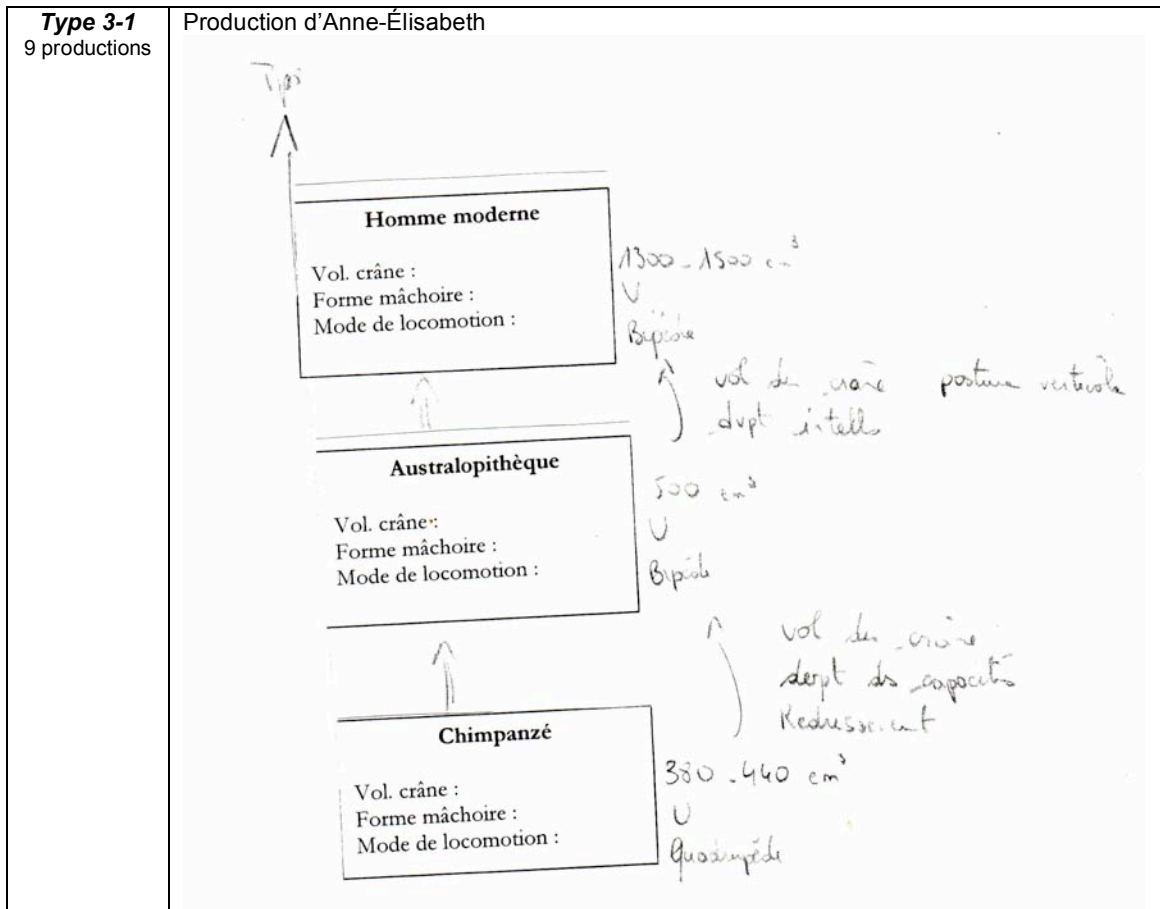 Type 3-1
9 productions
Production d’Anne-Élisabeth
Homme moderne
Vol. crâne :
Forme mâchoire :
Mode de locomotion :
1300-1500 cm³
U
Bipède
vol du crâne posture verticale
dvpt intells
Australopithèque
Vol. crâne :
Forme mâchoire :
Mode de locomotion :
500 cm³
U
Bipède
vol du crâne
devpt des capacités
Redressement
Chimpanzé
Vol. crâne :
Forme mâchoire :
Mode de locomotion :
380-440 cm³
U
Quadrupède